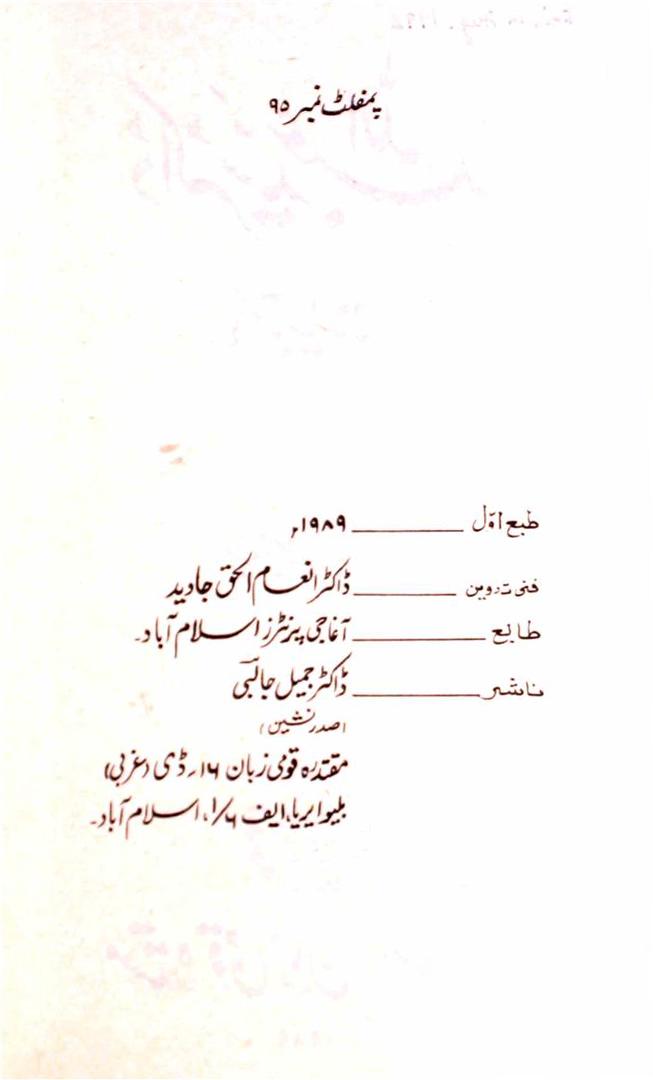 پمفلٹ نمبر ۹۵
طبع اوّل ــــــــــ ۱۹۸۹ء
فنی تدوین ــــــــــ ڈاکٹر انعام الحق جاوید
طابع ــــــــــ آغا جی پرنٹرز اسلام آباد۔
ناشر ــــــــــ ڈاکٹر جمیل جالبی
(صدر نشین)
مقتدرہ قومی زبان ۱۶۔ڈی (غربی)
بلیو ایریا، ایف ۱/۶، اسلام آباد۔